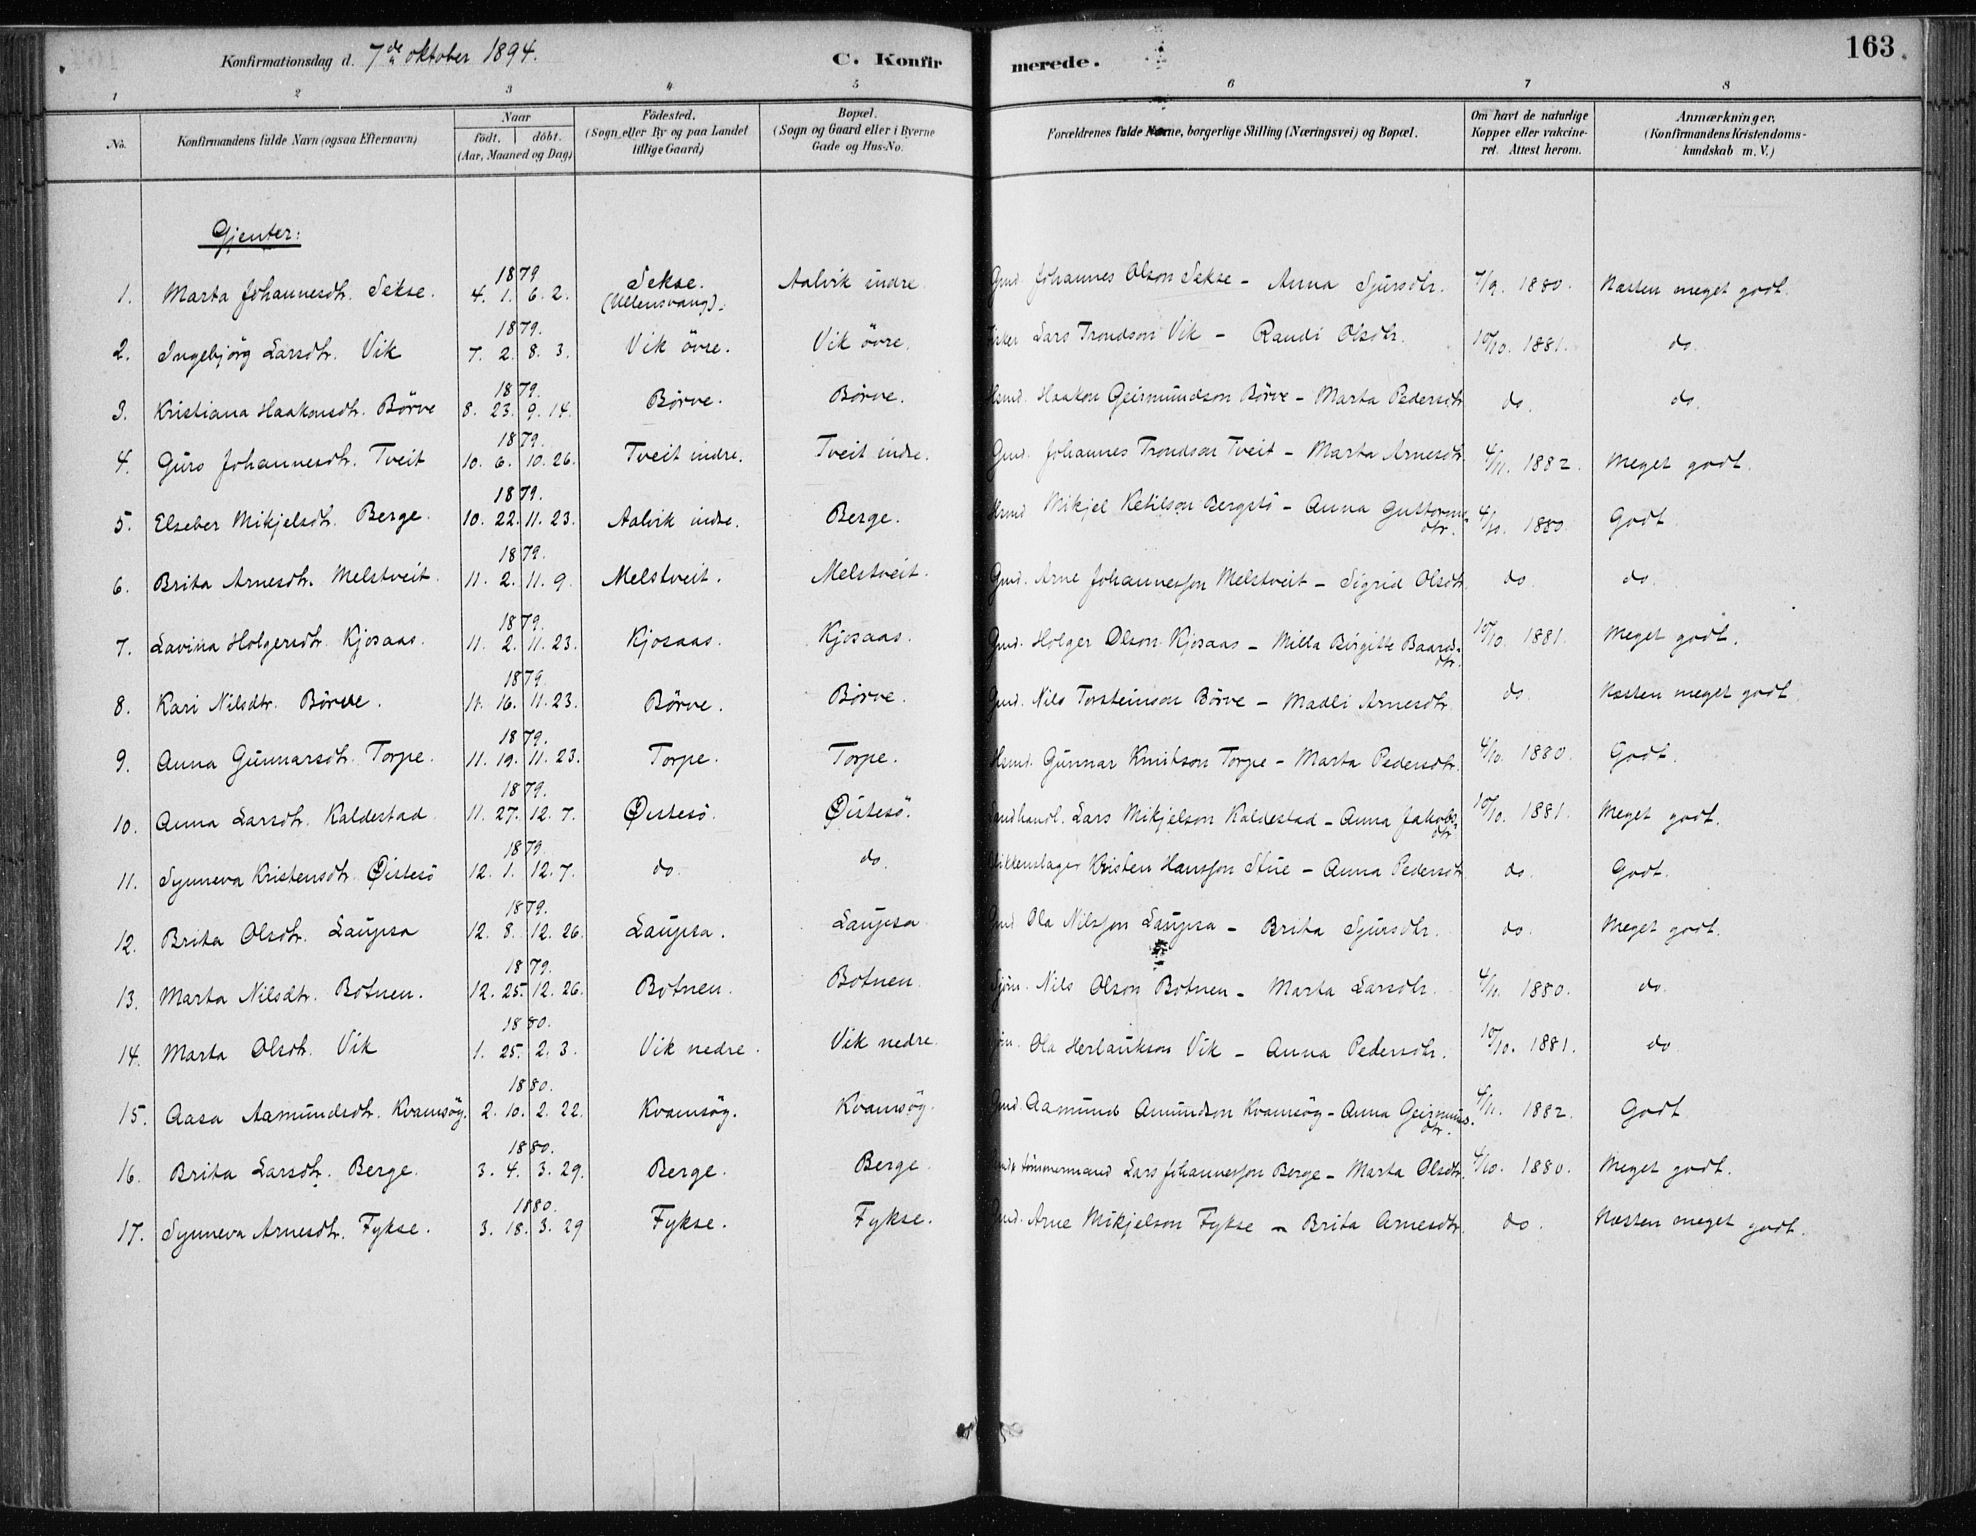 Konfirmationsdag d. 7de oktober 1894. C. Konfirmerede. 163
1 2 3 4 5 6 7 8
No. Konfirmandens fulde Navn (ogsaa Efternavn) Naar født. døbt. (Aar, Maaned og Dag) Fødested. (Sogn eller By og paa Landet tillige Gaard) Bopæl. (Sogn og Gaard eller i Byerne Gade og Hus-No. Forældrenes fulde Navne, borgerlige Stilling (Næringsvei) og Bopæl. Om havt de naturlige Kopper eller vakcineret. Attest herom. Anmærkninger. (Konfirmandens Kristendomskundskab m. V.)
Gjenter:
1. Marta Johannesdtr. Sekse. 1879 4. 1. 6. 2. Sekse. (Ullensvang). Aalvik indre. Gmd. Johannes Olson Sekse – Anna Sjursdtr. 7/9. 1880. Næsten meget godt.
2. Ingebjørg Larsdtr. Vik 1879. 7. 2. 8. 3. Vik øvre. Vik øvre. Lars Trondson Vik – Randi Olsdtr. 10/10. 1881. do.
3. Kristiana Haakonsdtr. Børve 1879. 8. 23. 9. 14. Børve. Børve. Hsmd. Haakon Geirmundson Børve – Marta Pedersdtr. do. do.
4. Guro Johannesdtr. Tveit 1879. 10. 6. 10. 26. Tveit indre. Tveit indre. Gmd. Johannes Trondson Tveit – Marta Arnesdtr. 4/11. 1882. Meget godt.
5. Elseber Mikjelsdtr. Berge. 1879. 10. 22. 11. 23. Aalvik indre. Berge. Hsmd Mikjel Ketilson Bergstø – Anna Guttormsdtr. 4/10. 1880. Godt.
6. Brita Arnesdtr. Melstveit. 1879. 11. 2. 11. 9. Melstveit. Melstveit. Gmd. Arne Johannesson Melstveit – Sigrid Olsdtr. do. do.
7. Lavina Holgersdtr. Kjosaas. 1879. 11. 2. 11. 23. Kjosaas. Kjosaas. Gmd. Holger Olson Kjosaas – Milla Birgitte Baardsdtr. 10/10. 1881. Meget godt.
8. Kari Nilsdtr. Børve. 1879. 11. 16. 11. 23. Børve. Børve. Gmd. Nils Torsteinson Børve – Madli Arnesdtr. do. Næsten meget godt.
9. Anna Gunnarsdtr. Torpe. 1879. 11. 19. 11. 23. Torpe. Torpe. Hsmd. Gunnar Knutson Torpe – Marta Pedersdtr. 4/10. 1880. Godt.
10. Anna Larsdtr. Kaldestad. 1879. 11. 27. 12. 7. Østesø. Østesø. Landhandl. Lars Mikjelson Kaldestad – Anna Jakobsdtr. 10/10. 1881. Meget godt.
11. Synneva Kristensdtr. Østesø 1879. 12. 1. 12. 7. do. do. Blikkenslager Kristen Hansson Stue – Anna Pedersdtr. do. Godt.
12. Brita Olsdtr. Laupsa 1879. 12. 8. 12. 26. Laupsa. Laupsa. Gmd Ola Nilsson Laupsa – Brita Sjursdtr. do. Meget godt.
13. Marta Nilsdtr. Botnen. 1879. 12. 25. 12. 26. Botnen. Botnen. Sjøm. Nils Olson Botnen – Marta Larsdtr. 4/11. 1880. do.
14. Marta Olsdtr. Vik 1880. 1. 25. 2. 3. Vik nedre. Vik nedre. Ola Herlaukson Vik – Anna Pedersdtr. 10/10. 1881. do
15. Aasa Aamundsdtr. Kvamsøy. 1880. 2. 10. 2. 22. Kvamsøy. Kvamsøy. Gmd. Aamund Amundson Kvamsøy – Anna Geirmunsdtr. 4/11. 1882. Godt.
16. Brita Larsdtr. Berge. 1880. 3. 4. 3. 29. Berge. Berge. tømmermand Lars Johannesson Berge – Marta Olsdtr. 4/10. 1880. Meget godt.
17. Synneva Arnesdtr. Fykse. 1880. 3. 18. 3. 29 Fykse. Fykse. Gmd. Arne Mikjelson Fykse – Brita Arnesdtr. do. Næsten meget godt.